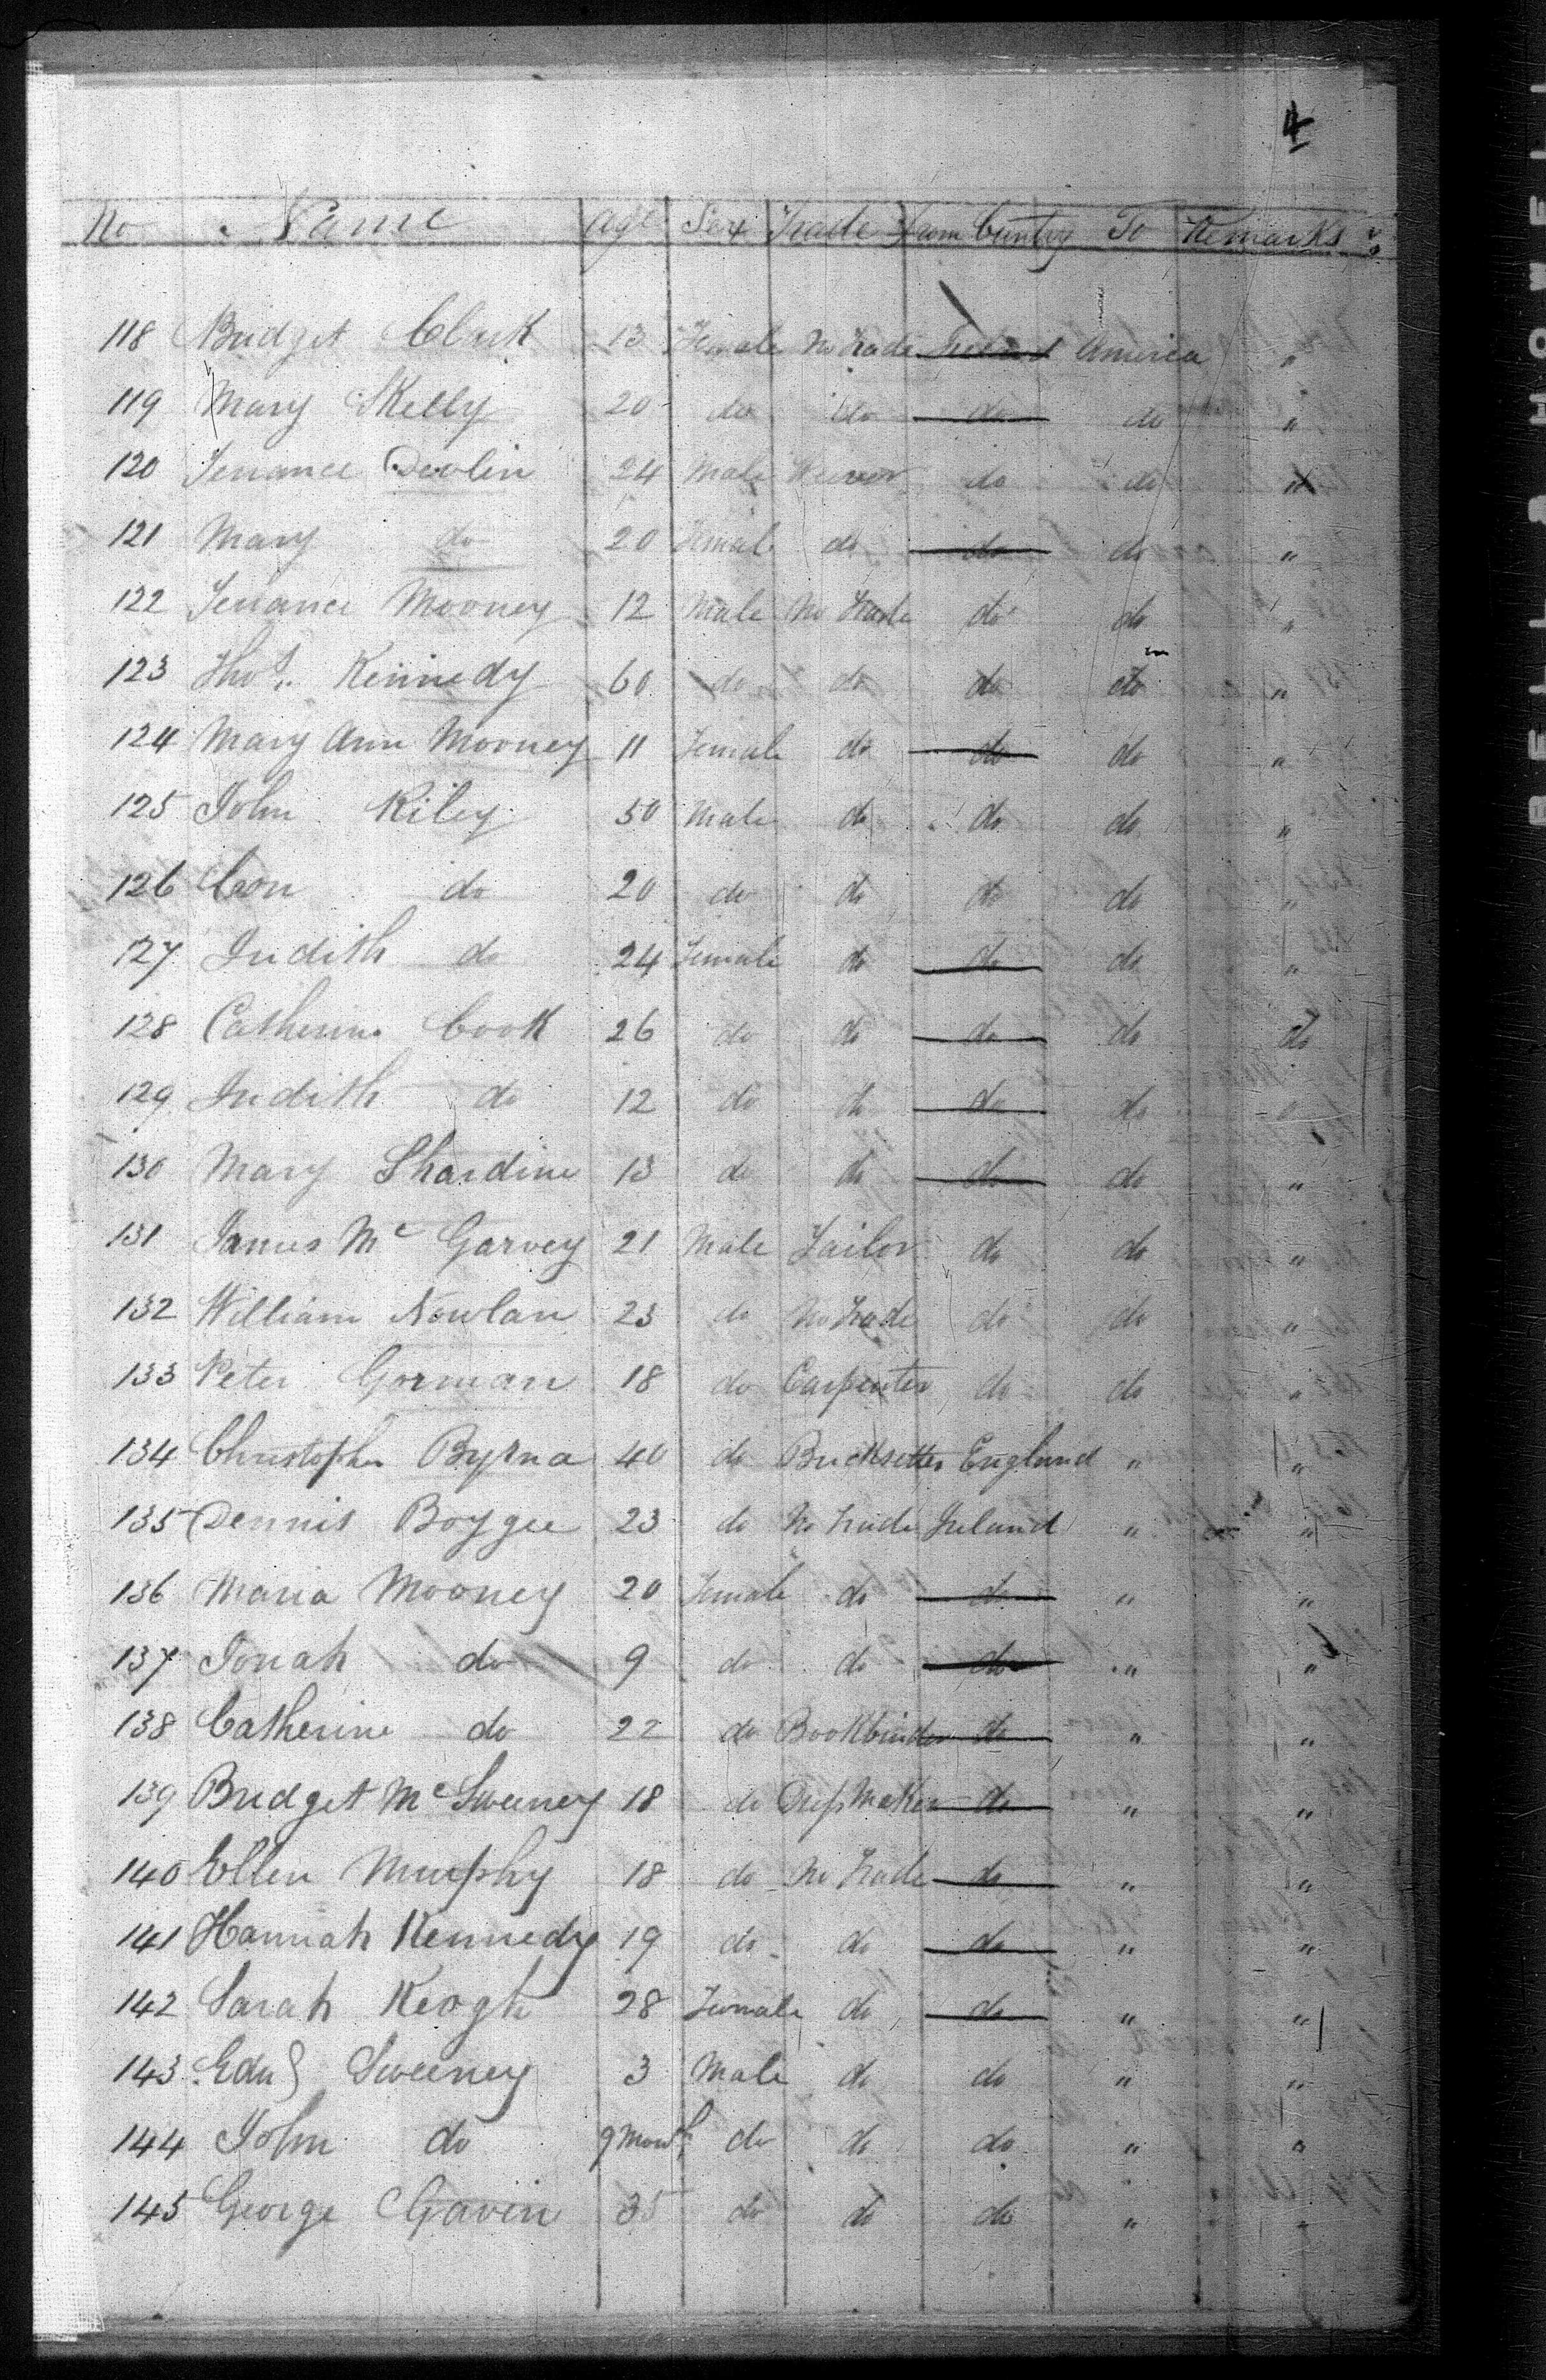 4
No Name Age Sex Trade from Cuntry To Remarks
118 Bridget Clark 13 Female No Trade Ireland America "
119 Mary Skelly 20 do do do do "
120 Terrance Devlin 24 Male Weaver do do "
121 Mary do 20 Female do do do "
122 Terrance Mooney 12 Male No Trade do do "
123 Thos. Kennedy 60 do do do do "
124 Mary Ann Mooney 11 Female do do do "
125 John Riley 50 Male do do do "
126 Con do 20 do do do do "
127 Judith do 24 Female do do do "
128 Catherine Cook 26 do do do do do
129 Judith do 12 do do do do "
130 Mary Shardine 13 do do do do "
131 James Mc Garvey 21 Male Tailor do do "
132 William Nowlan 23 do No Trade do do "
133 Peter Gorman 18 do Carpenter do do "
134 Christopher Byrna 40 do Bricksetter England " "
135 Dennis Boygee 23 do No Trade Ireland " "
136 Maria Mooney 20 Female do do " "
137 Jonah do 9 do do do " "
138 Catherine do 22 do Bookbinder do " "
139 Bridget McSweeney 18 do Dress Maker do " "
140 Ellen Murphy 18 do No Trade do " "
141 Hannah Kennedy 19 do do do " "
142 Sarah Keogh 28 Female do do " "
143 Edwd Sweeney 3 Male do do " "
144 John do 9 Month do do do " "
145 George Gavin 35 do do do " "
BELL & HOWELL